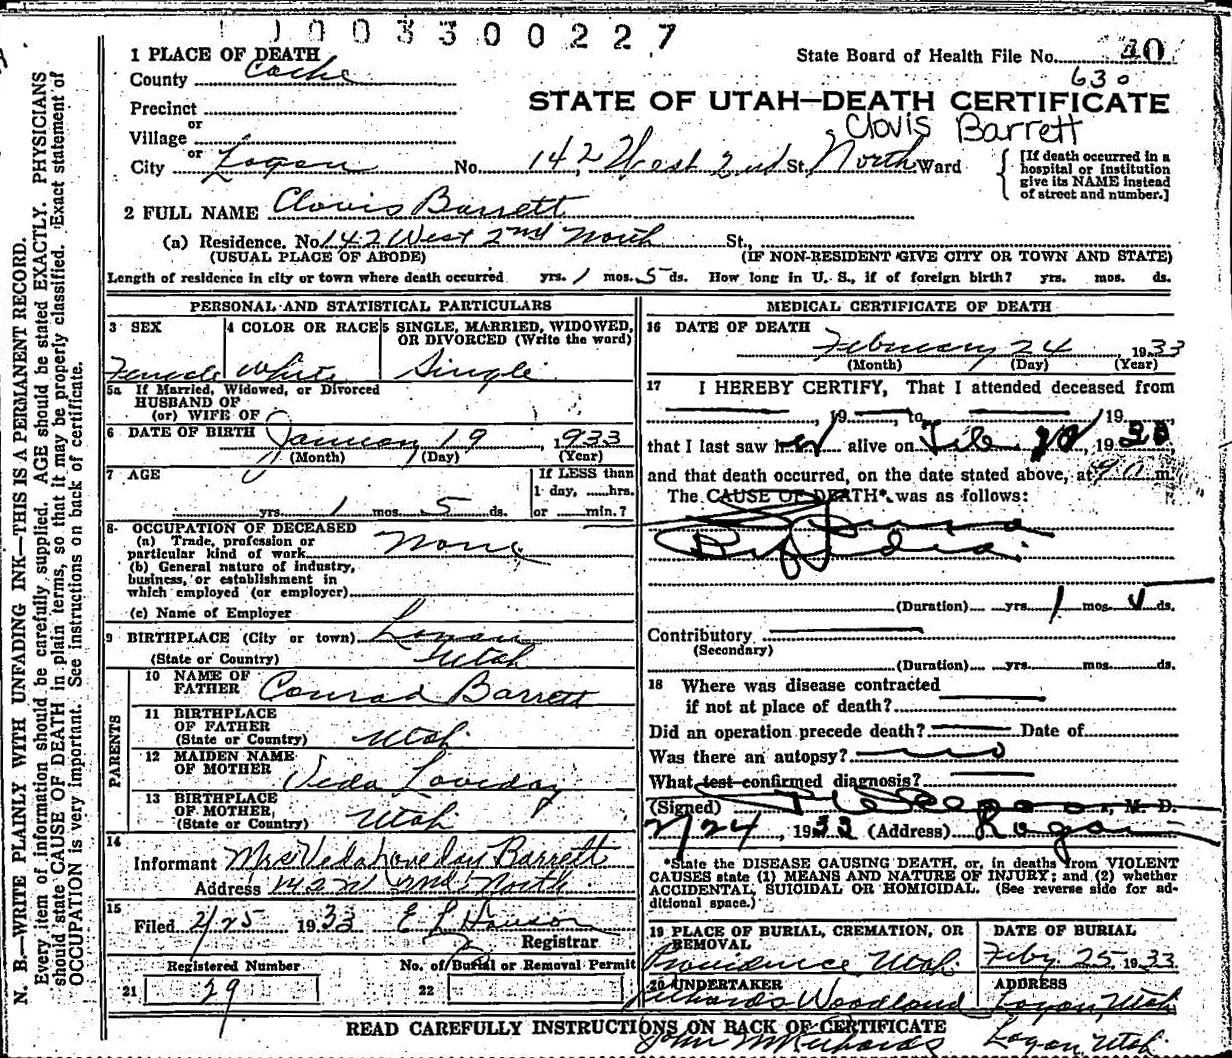 1 0 0 3 3 0 0 2 2 7
1 PLACE OF DEATH
State Board of Health File No. 40
County Cache
630
Precinct
STATE OF UTAH—DEATH CERTIFICATE
or
Village
Clovis Barrett
or
City Logan No. 142 West 2nd St, North Ward
[If death occurred in a hospital or institution give its NAME instead of street and number.]
2 FULL NAME Clovis Barrett
(a) Residence. No. 142 West 2nd North St.,
(USUAL PLACE OF ABODE) (IF NON-RESIDENT GIVE CITY OR TOWN AND STATE)
Length of residence in city or town where death occurred yrs. 1 mos. 5 ds. How long in U. S., if of foreign birth? yrs. mos. ds.
PERSONAL AND STATISTICAL PARTICULARS
3 SEX
Female
4 COLOR OR RACE
White
5 SINGLE, MARRIED, WIDOWED,
OR DIVORCED (Write the word)
Single
5a If Married, Widowed, or Divorced
HUSBAND OF
(or) WIFE OF
6 DATE OF BIRTH January 19 1933
(Month) (Day) (Year)
7 AGE
yrs. 1 mos. 5 ds.
If LESS than
1 day, hrs.
or min.?
8 OCCUPATION OF DECEASED
(a) Trade, profession or
particular kind of work None
(b) General nature of industry,
business, or establishment in
which employed (or employer)
(c) Name of Employer
9 BIRTHPLACE (City or town) Logan
(State or Country) Utah
PARENTS
10 NAME OF
FATHER Conrad Barrett
11 BIRTHPLACE
OF FATHER
(State or Country) Utah
12 MAIDEN NAME
OF MOTHER Veda Loveday
13 BIRTHPLACE
OF MOTHER
(State or Country) Utah
14
Informant Mrs Veda Loveday Barrett
Address 2nd North
15
Filed 2/25 1933 E L Hanson
Registrar
Registered Number No. of Burial or Removal Permit
21 29 22
MEDICAL CERTIFICATE OF DEATH
16 DATE OF DEATH
February 24 1933
(Month) (Day) (Year)
17 I HEREBY CERTIFY, That I attended deceased from
19 to 19
that I last saw her alive on Feb 19
and that death occurred, on the date stated above, at m.
The CAUSE OF DEATH* was as follows:
(Duration) yrs. 1 mos. ds.
Contributory
(Secondary)
(Duration) yrs. mos. ds.
18 Where was disease contracted
if not at place of death?
Did an operation precede death? Date of
Was there an autopsy? no
What test confirmed diagnosis?
(Signed) M. D.
2/24, 1933 (Address) Logan
*State the DISEASE CAUSING DEATH, or, in deaths from VIOLENT
CAUSES state (1) MEANS AND NATURE OF INJURY; and (2) whether
ACCIDENTAL, SUICIDAL OR HOMICIDAL. (See reverse side for ad-
ditional space.)
19 PLACE OF BURIAL, CREMATION, OR
REMOVAL
Providence Utah
DATE OF BURIAL
Feby 25 1933
20 UNDERTAKER
Richards Woodland
John W Richards
ADDRESS
Logan, Utah
Logan, Utah
READ CAREFULLY INSTRUCTIONS ON BACK OF CERTIFICATE
N. B.—WRITE PLAINLY WITH UNFADING INK—THIS IS A PERMANENT RECORD.
Every item of information should be carefully supplied. AGE should be stated EXACTLY. PHYSICIANS
should state CAUSE OF DEATH in plain terms, so that it may be properly classified. Exact statement of
OCCUPATION is very important. See instructions on back of certificate.